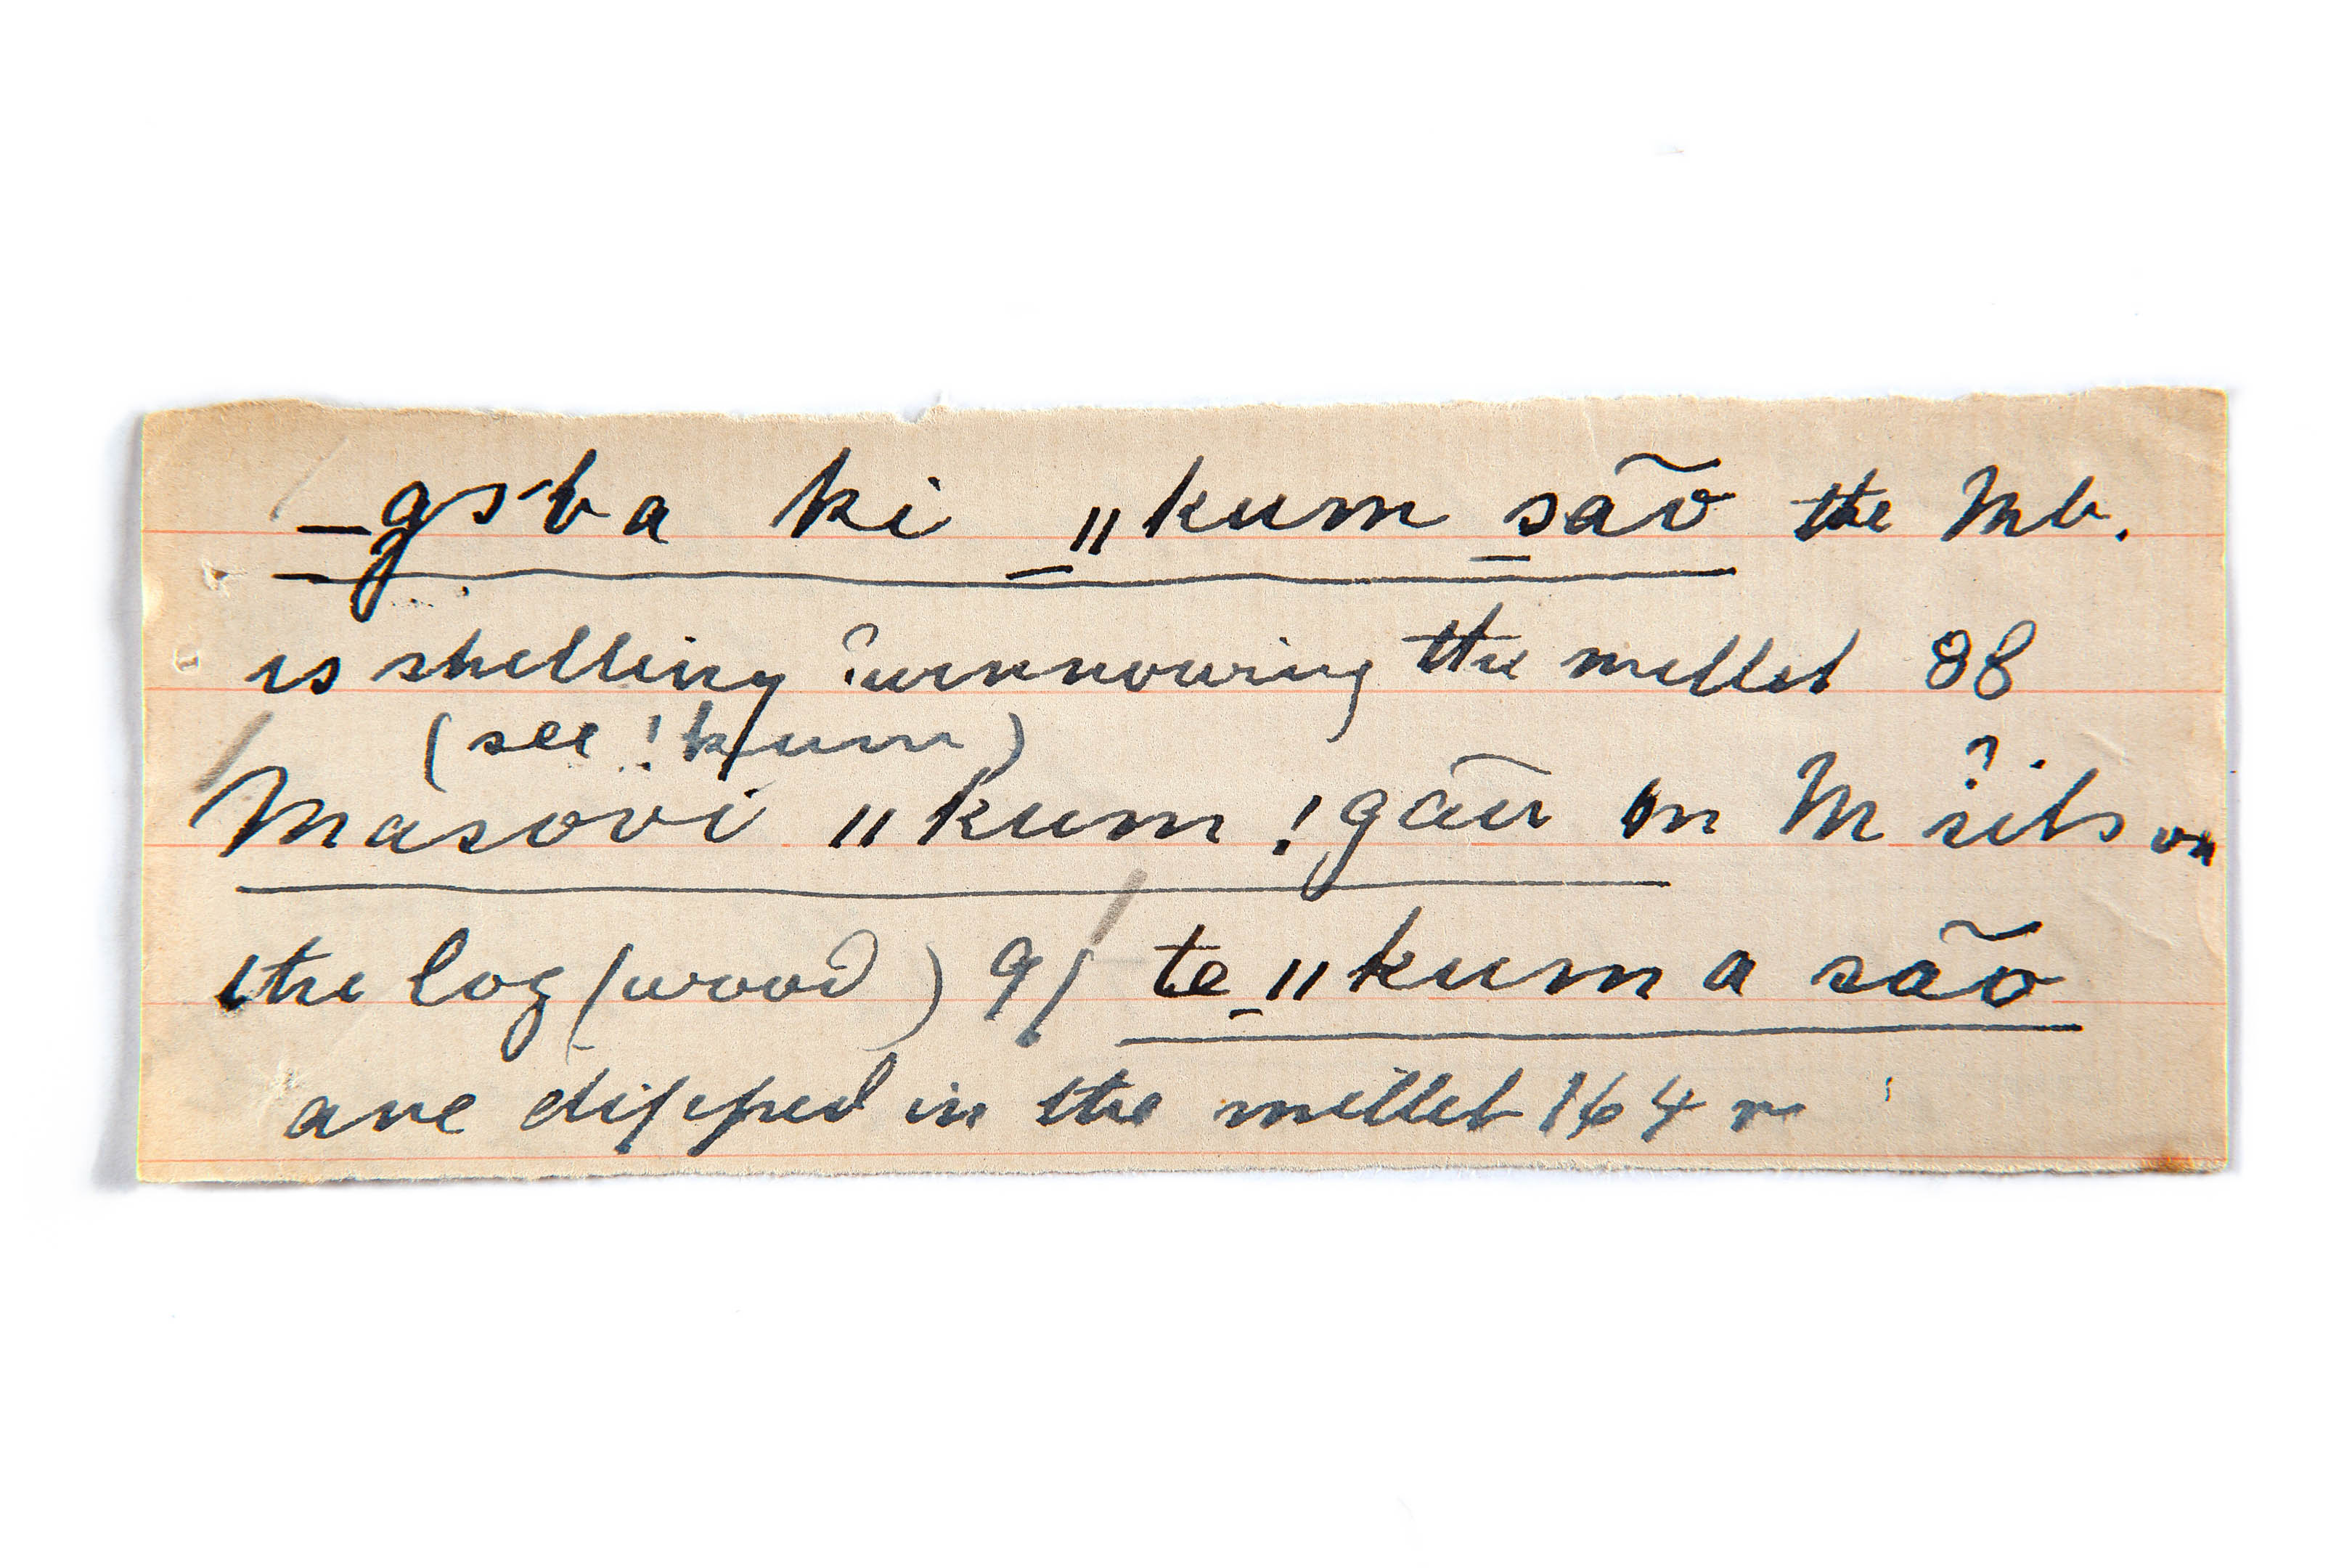 _gs'ba ki _‖kum são the Mb.
is shelling ? winnowing the millet 88
(see !kum)
Masovi ‖kum !gãu on M ? sits on
the log (wood) 91 te_‖kum a são
are dipped in the millet 164 r